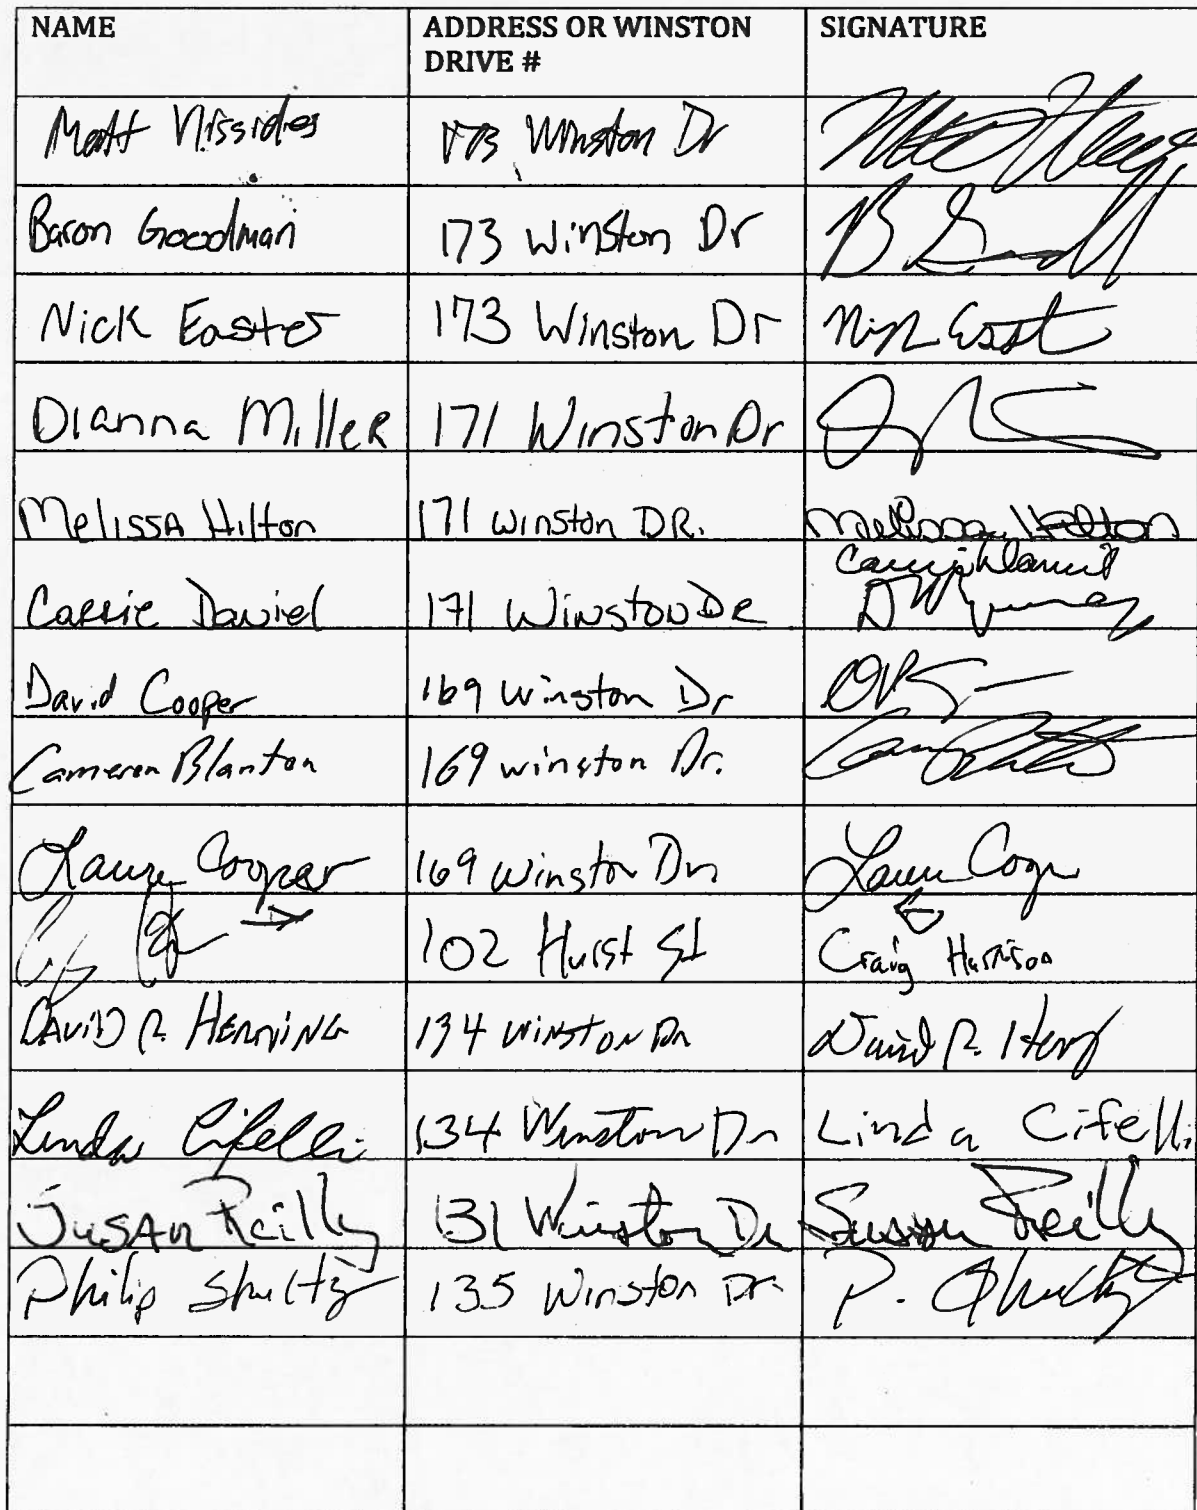 NAME ADDRESS OR WINSTON DRIVE # SIGNATURE
Matt Nissides 173 Winston Dr
Baron Goodman 173 Winston Dr
Nick Easter 173 Winston Dr
Dianna Miller 171 Winston Dr
Melissa Hilton 171 Winston DR. Melissa Hilton
Carrie Daniel 171 Winston DR Carrie Daniel
David Cooper 169 Winston Dr
Cameron Blanton 169 winston Dr.
Laura Cooper 169 Winston Dr
→ 102 Hurst St Craig Harrison
DAVID R. HENNING 134 WINSTON DR David R.
Linda Cifelli 134 Winston Dr Linda Cifelli
Susan Reilly 131 Winston Dr Susan Reilly
Philip Shultz 135 Winston Dr. P. Shultz